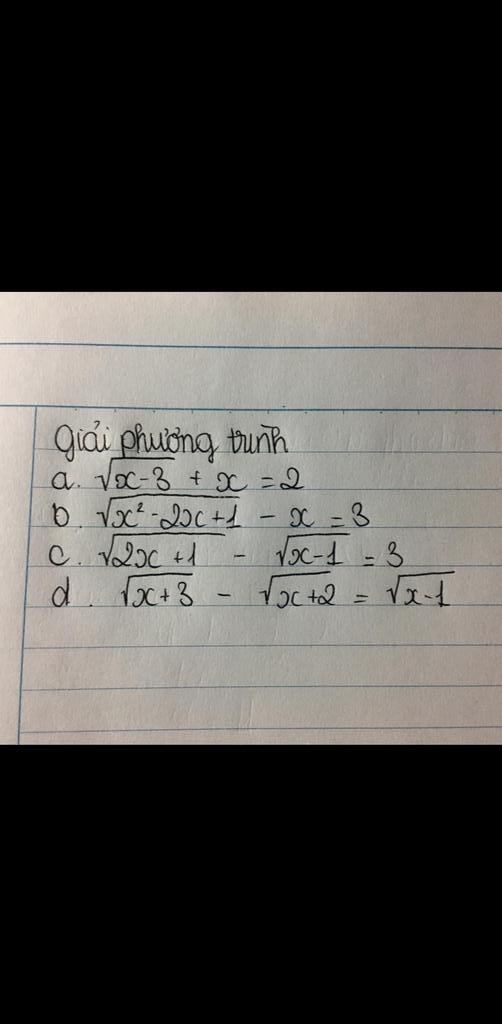 Giải phương trình
a. √x-3 + x = 2
b. √x²-2x+1 - x = 3
c. √2x+1 - √x-1 = 3
d. √x+3 - √x+2 = √x-1